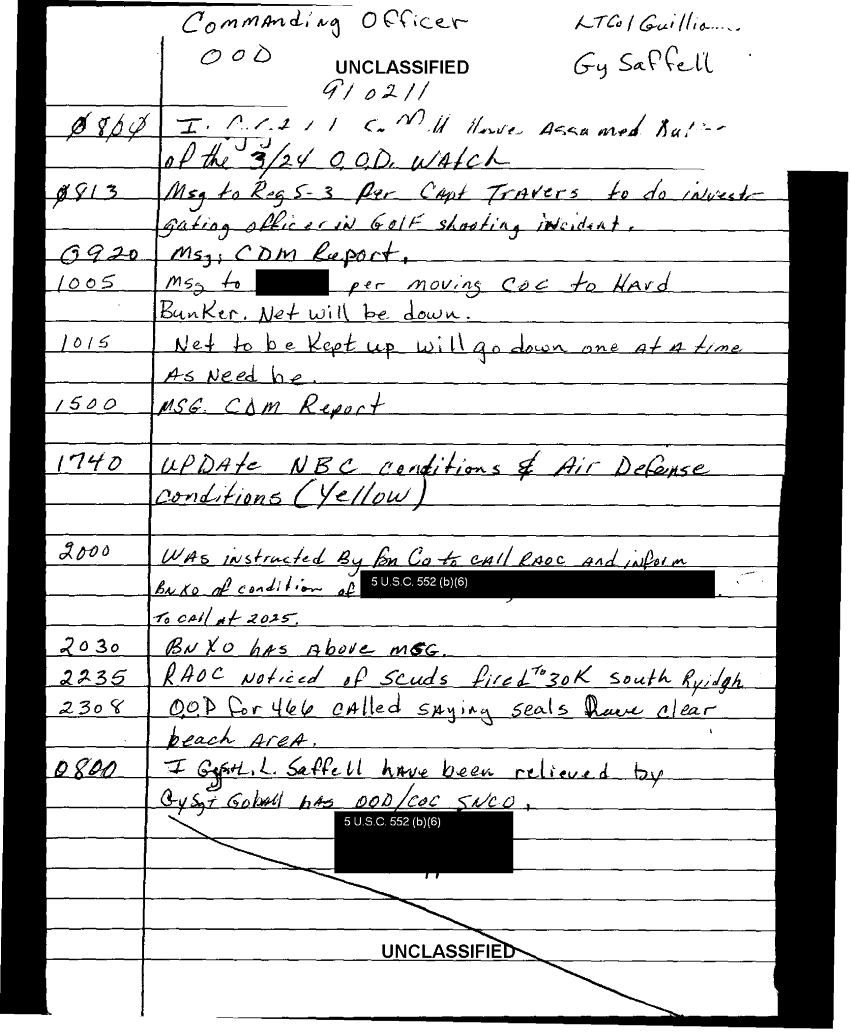 Commanding Officer LTCol Guillia.....
OOD Gy Saffell
UNCLASSIFIED
910211
0800 I. Have Assumed
of the 3/24 O.O.D. WAtch
0813 Msg to Reg S-3 per Capt Travers to do investi-
gating officer in Golf shooting incident.
0920 Msg; CDM Report.
1005 Msg to per moving COC to HArd
Bunker. Net will be down.
1015 Net to be Kept up will go down one At A time
As Need be.
1500 MSG. CDM Report
1740 UPDAte NBC conditions & Air Defense
conditions (Yellow)
2000 WAs instructed By Bn Co to cAll RAOC And inform
BnXO of condition of 5 U.S.C. 552 (b)(6)
To cAll At 2025.
2030 BN XO hAs Above MSG.
2235 RAOC Noticed of Scuds fired To 30K South Ryidgh
2308 O.O.D for 466 cAlled sAying seals have clear
beach AreA.
0800 I GySgt L. Saffell hAve been relieved by
GySgt hAs OOD/COC SNCO.
5 U.S.C. 552 (b)(6)
UNCLASSIFIED